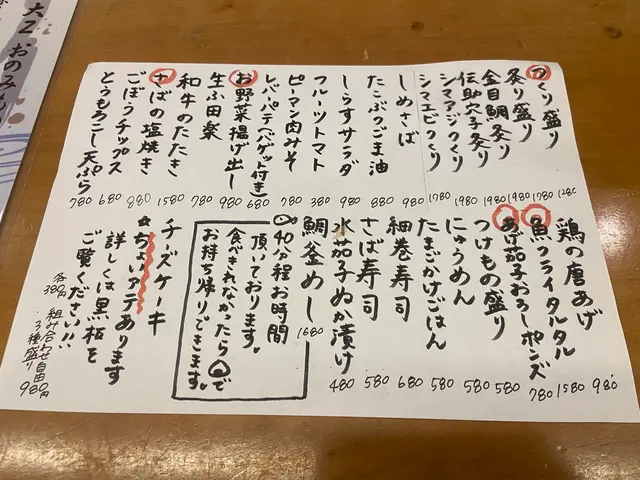 つくり盛り 1280
炙り盛り 1780
金目鯛炙り 1980
伝助穴子炙り 1980
シマアジつくり 1980
シマエビつくり 1780
しめさば 980
たこぶつごま油 880
しらすサラダ 980
フルーツトマト 380
ピーマン肉みそ 780
レバパテ(バゲット付き) 680
お野菜揚げ出し 980
生ふ田楽 780
和牛のたたき 1580
さばの塩焼き 880
ごぼうチップス 680
とうもろこし天ぷら 780
鶏の唐あげ 980
魚フライタルタル 1580
あげ茄子おろしポンズ 780
つけもの盛り 580
にゅうめん 580
たまごかけごはん 580
細巻寿司 680
さば寿司 580
水茄子ぬか漬け 480
鯛釜めし 1680
40分程お時間
頂いております。
食べきれなかったら で
お持ち帰りできます。
チーズケーキ
☆ちょいアテあります
詳しくは黒板を
ご覧ください!!
各380円 組み合わせ自由
3種盛り 980円
大乙
おのみもの